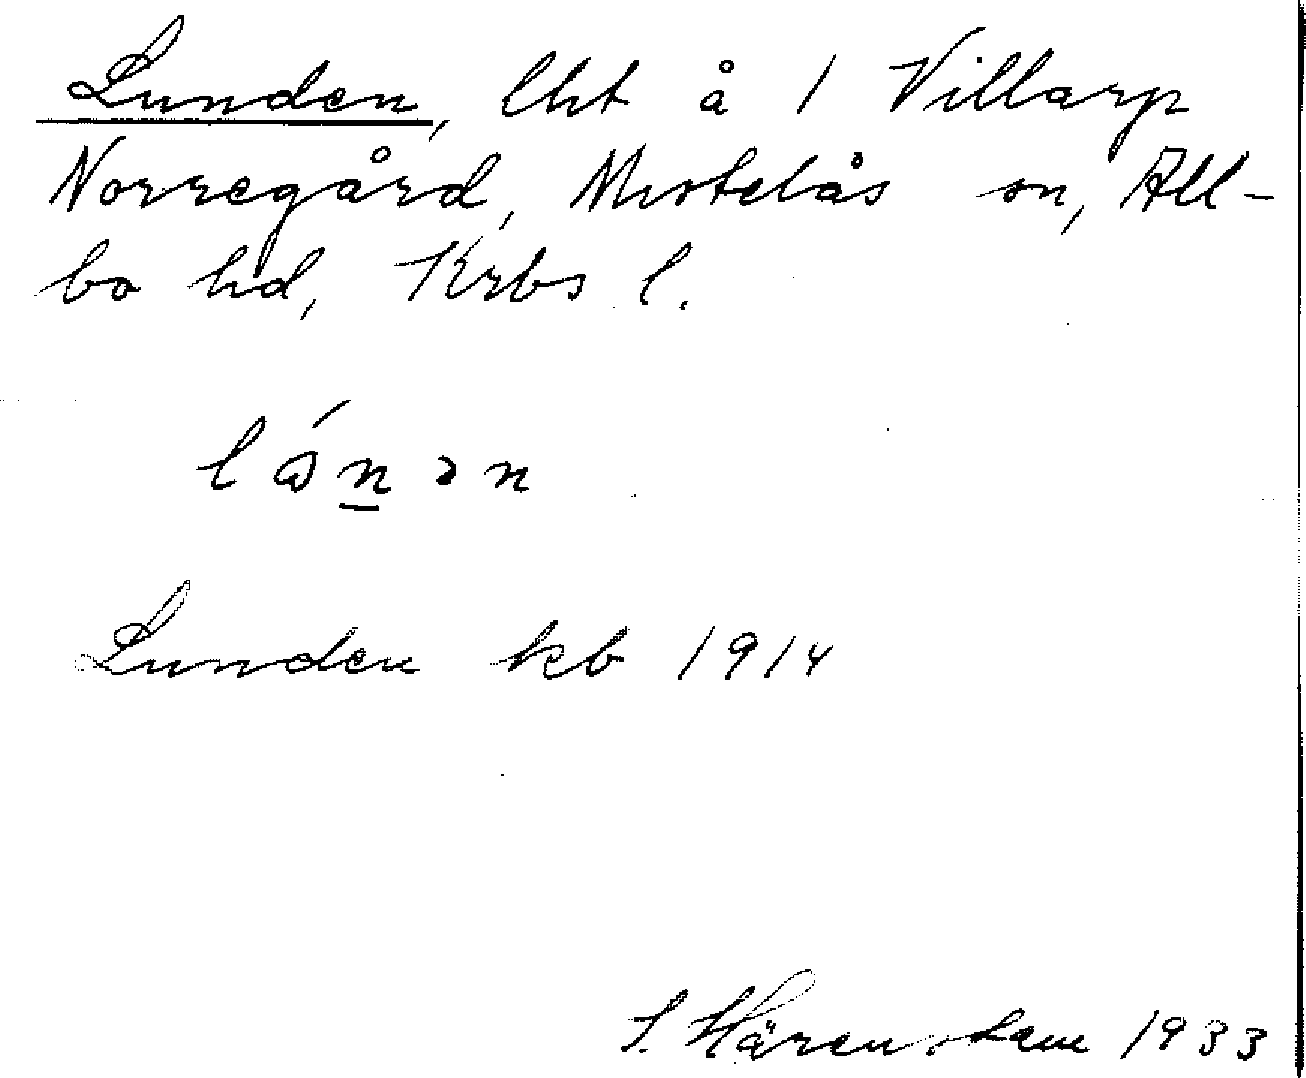 Lunden, lht å 1 Villarp
Norregård, Mistelås sn, All-
bo hd, Krbs l.
Lunden kb 1914
S. Härenstam 1933